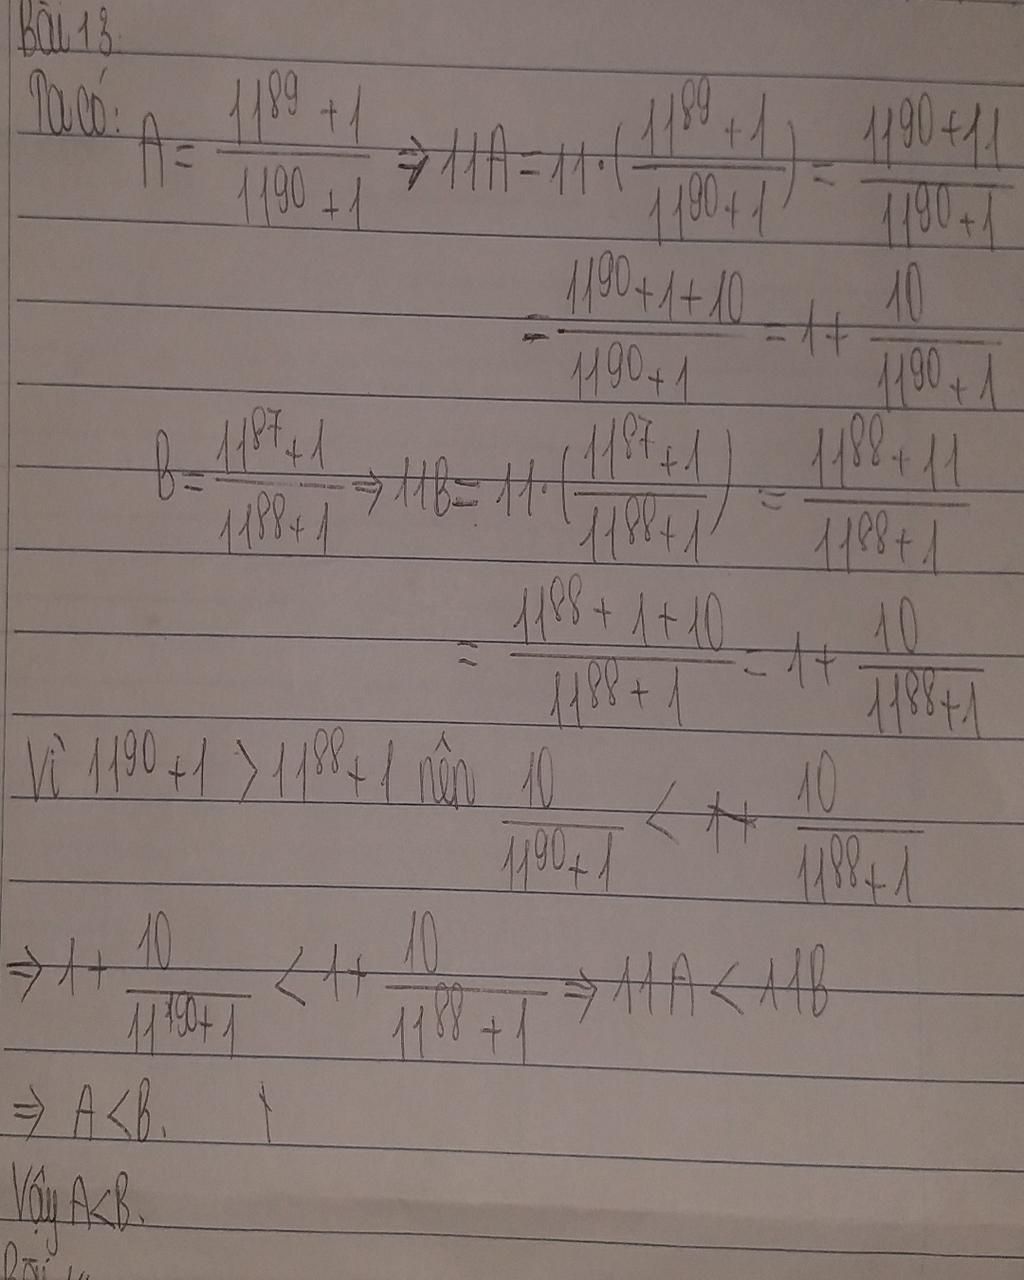 Bài 13.
Ta có: A = \frac{11^{89}+1}{11^{90}+1} ⇒ 11A = 11·(\frac{11^{89}+1}{11^{90}+1}) = \frac{11^{90}+11}{11^{90}+1}
= \frac{11^{90}+1+10}{11^{90}+1} = 1 + \frac{10}{11^{90}+1}
B = \frac{11^{87}+1}{11^{88}+1} ⇒ 11B = 11·(\frac{11^{87}+1}{11^{88}+1}) = \frac{11^{88}+11}{11^{88}+1}
= \frac{11^{88}+1+10}{11^{88}+1} = 1 + \frac{10}{11^{88}+1}
Vì 11^{90}+1 > 11^{88}+1 nên \frac{10}{11^{90}+1} < \frac{10}{11^{88}+1}
⇒ 1 + \frac{10}{11^{90}+1} < 1 + \frac{10}{11^{88}+1} ⇒ 11A < 11B
⇒ A < B.
Vậy A < B.